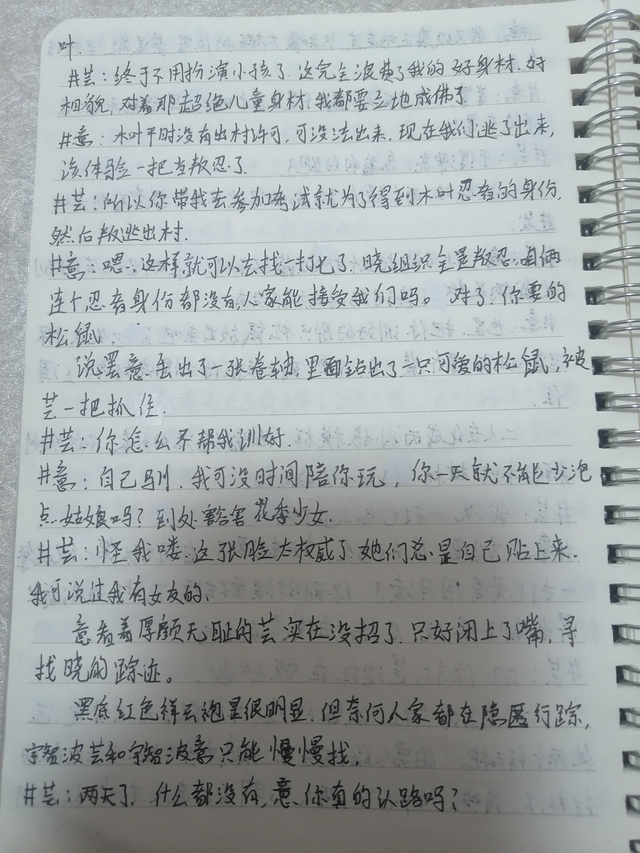 叶.
#芸：终于不用扮演小孩了.这完全浪费了我的好身材.好
相貌.对着那超绝儿童身材,我都要立地成佛了
#意：木叶平时没有出村许可,可没法出来,现在我们逃了出来,
该体验一把当叛忍了.
#芸：所以你带我去参加考试就为了得到木叶忍者的身份,
然后叛逃出村.
#意：嗯、这样就可以去找一打七了.晓组织全是叛忍.咱俩
连个忍者身份都没有,人家能接受我们吗。对了,你要的
松鼠
说罢意丢出了一张卷轴,里面钻出了一只可爱的松鼠,被
芸一把抓住.
#芸：你怎么不帮我训好.
#意：自己驯.我可没时间陪你玩，你一天就不能少泡
点姑娘吗？到处豁害花季少女.
#芸：怪我喽.这张脸太权威了她们总是自己贴上来.
我可说过我有女友的.
意看着厚颜无耻的芸实在没招了.只好闭上了嘴,寻
找晓的踪迹。
黑底红色祥云袍是很明显.但奈何人家都在隐匿行踪,
宇智波芸和宇智波意只能慢慢找.
#芸：两天了.什么都没有,意.你真的认路吗？